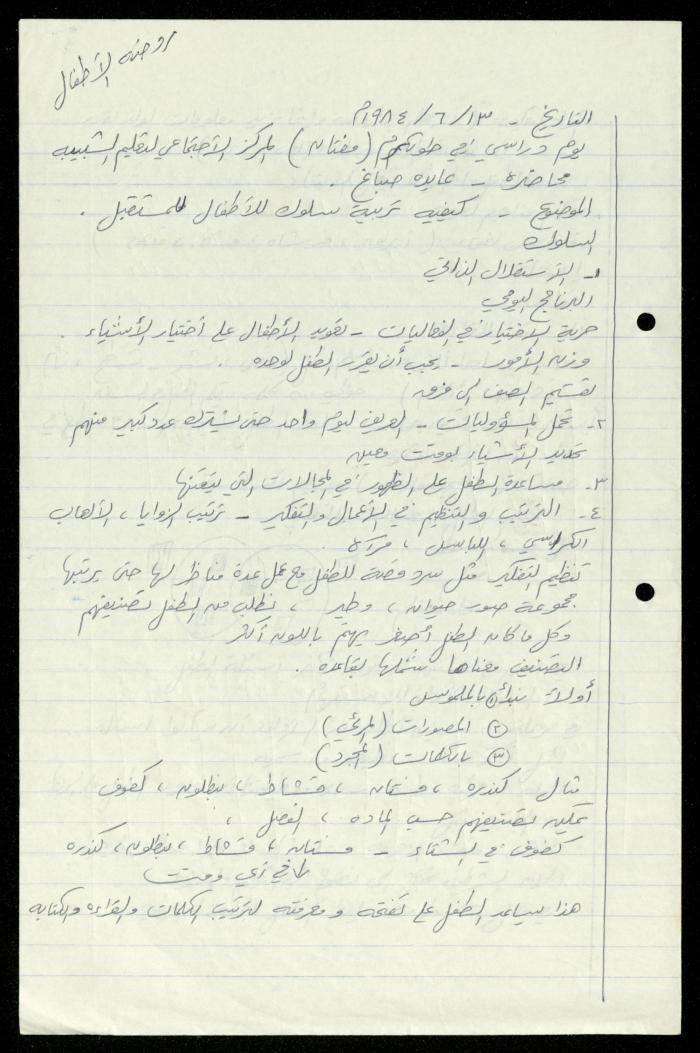 روضة الأطفال
التاريخ - ١٣/٦/١٩٨٤م
يوم دراسي في طولكرم (مفتان) المركز الاجتماعي لتعليم الشبيبه
محاضرة - عايده صباغ -
الموضوع - كيفيه تربية سلوك للأطفال للمستقبل .
السلوك
١- الاستقلال الذاتي
البرنامج اليومي
حرية الاختيار في الفعاليات - تعويد الأطفال على أختيار الأشياء .
وزن الأمور - يجب أن يقرر الطفل لوحده .
تقسيم الصف الى فرق
٢- تحمل المسؤوليات - العريف ليوم واحد حتى يشترك عدد كبير منهم
تحديد الأشياء بوقت معين
٣- مساعدة الطفل على الظهور في المجالات التي يتقنها
٤- الترتيب والتنظيم في الأعمال والتفكير - ترتيب الزوايا ، الألعاب
الكراسي ، الملابس ،
تنظيم التفكير مثل سرد قصة للطفل مع عمل عدة مناظر لها حتى يرتبها
مجموعة صور حيوان ، وطير ، نطلب من الطفل تصنيفهم
وكل ما كان الطفل أصغر يهتم باللون أكثر
التصنيف معناها شملها بقاعده .
أولاً نبدأ ① بالملموس
② المصورات (المرئي)
③ بالكلمات (المجرد)
مثال كندره ، فستان ، قشاط ، بنطلون ، كفوف
يمكن تصنيفهم حسب الماده ، الفصل ،
كفوف في الشتاء - فستان ، قشاط ، بنطلون ، كندره
في أي وقت
هذا يساعد الطفل على تفتحه ومعرفته لترتيب الكلمات والقراءه والكتابه